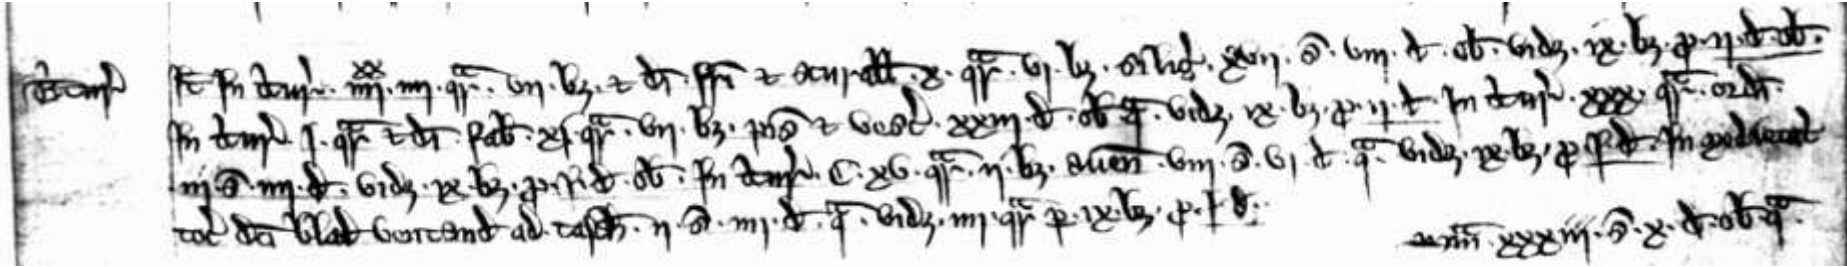 Tritur
Et In tritur . iiij xx . iiij . qr . vij . bz . et di . fri et curall . x . qr . vj . bz . silig . xvij . s . viij . d . ob . vidz . ix . bz . p . ij . d ob .
In tritur . j . qr et di . fab . xj . qr . vij . bz . pis et vesc . xxiij . d . ob q . vidz . ix . bz . p . ij . d . In tritur . xxx . qr . ordi .
iij . s . iiij . d . vidz . ix . bz . p . j . d . ob . In tritur . C . xv . qr . ij . bz . aven . viij . s . vj . d . q . vidz . ix . bz . p j d . In
toc dci blad ventand ad tasch . ij . s . iiij . d . q . vidz . iiij . qr p . ix . bz . p . j d .
Sum . xxxiij . s . x . d . ob q .